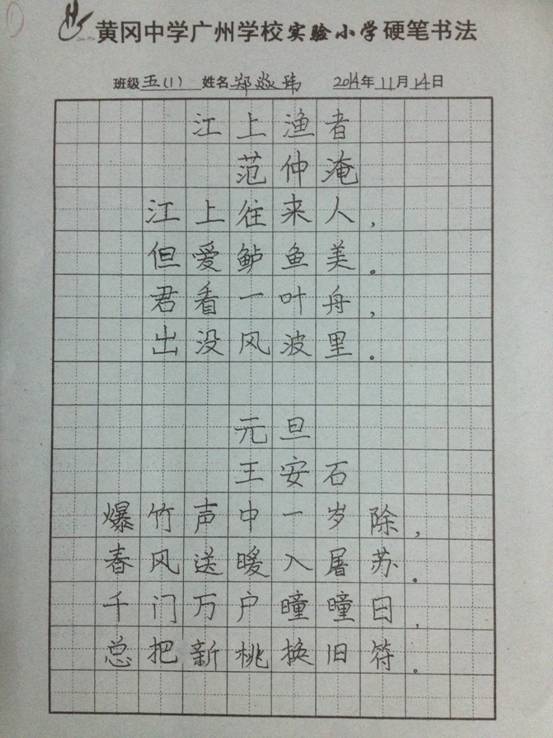 黄冈中学广州学校实验小学硬笔书法
班级五(1) 姓名郑焱玮 2014年11月14日
江上渔者
范仲淹
江上往来人，
但爱鲈鱼美。
君看一叶舟，
出没风波里。
元旦
王安石
爆竹声中一岁除，
春风送暖入屠苏。
千门万户瞳瞳日，
总把新桃换旧符。